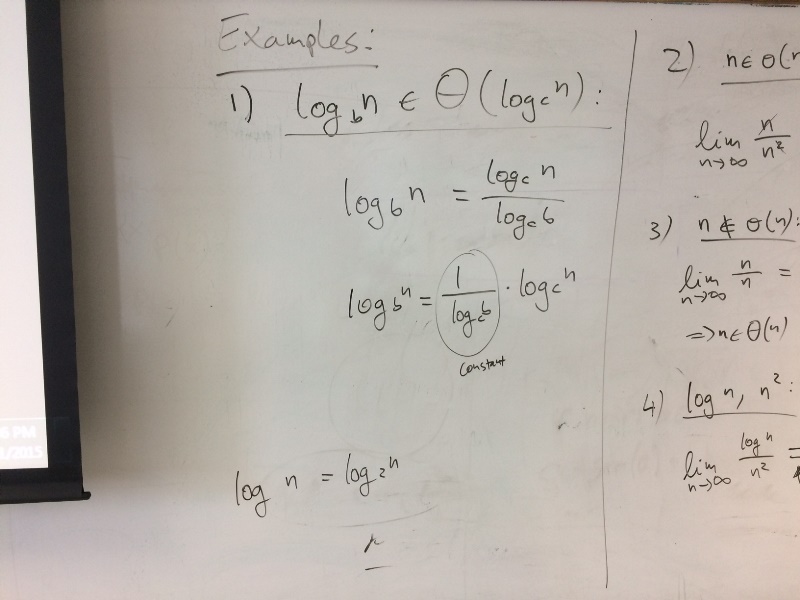 Examples:
1) log_b n ∈ Θ(log_c n):
log_b n = log_c n / log_c b
log_b n = 1 / log_c b · log_c n
constant
log n = log_2 n
2) n ∈ o(n
lim n→∞ n / n²
3) n ∉ o(n):
lim n→∞ n / n =
⇒ n ∈ Θ(n)
4) log n, n²:
lim n→∞ log n / n² =
6 PM
1/2015